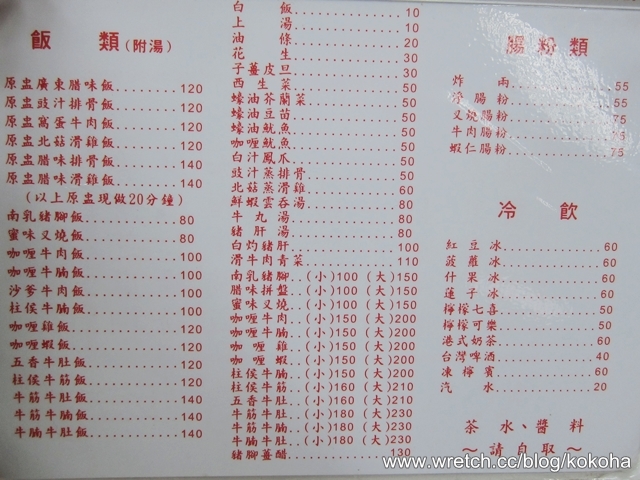 飯 類(附湯)
原盅廣東腊味飯........120
原盅豉汁排骨飯........120
原盅窩蛋牛肉飯........120
原盅北菇滑雞飯........120
原盅腊味排骨飯........140
原盅腊味滑雞飯........140
(以上原盅現做20分鐘)
南乳豬腳飯............80
蜜味叉燒飯............80
咖喱牛肉飯............100
咖喱牛腩飯............100
沙爹牛肉飯............100
柱侯牛腩飯............100
咖喱雞飯..............120
咖喱蝦飯..............120
五香牛肚飯............120
柱侯牛筋飯............120
牛筋牛肚飯............140
牛筋牛腩飯............140
牛腩牛肚飯............140
白飯..................10
上湯..................10
油條..................20
花生..................30
子薑皮旦..............30
西生菜................50
蠔油芥蘭菜............50
蠔油豆苗..............50
蠔油魷魚..............50
咖喱魷魚..............50
白汁鳳爪..............50
豉汁蒸排骨............50
北菇蒸滑雞............60
鮮蝦雲吞湯............60
牛丸湯................80
豬肝湯................80
白灼豬肝..............100
滑牛肉青菜............110
南乳豬腳..(小)100 (大)150
腊味拼盤..(小)100 (大)150
蜜味叉燒..(小)100 (大)150
咖喱牛肉..(小)150 (大)200
咖喱牛腩..(小)150 (大)200
咖喱雞..(小)150 (大)200
咖喱蝦..(小)150 (大)200
柱侯牛腩..(小)150 (大)200
柱侯牛筋..(小)160 (大)210
五香牛肚..(小)160 (大)210
牛筋牛肚..(小)180 (大)230
牛筋牛腩..(小)180 (大)230
牛腩牛肚..(小)180 (大)230
豬腳薑醋..............130
腸粉類
炸兩..................55
淨腸粉................55
叉燒腸粉..............75
牛肉腸粉..............75
蝦仁腸粉..............75
冷 飲
紅豆冰................60
菠蘿冰................60
什果冰................60
蓮子冰................60
檸檬七喜..............50
檸檬可樂..............50
港式奶茶..............60
台灣啤酒..............40
凍檸賓................60
汽水..................20
茶水、醬料
～請自取～
www.wretch.cc/blog/kokoha